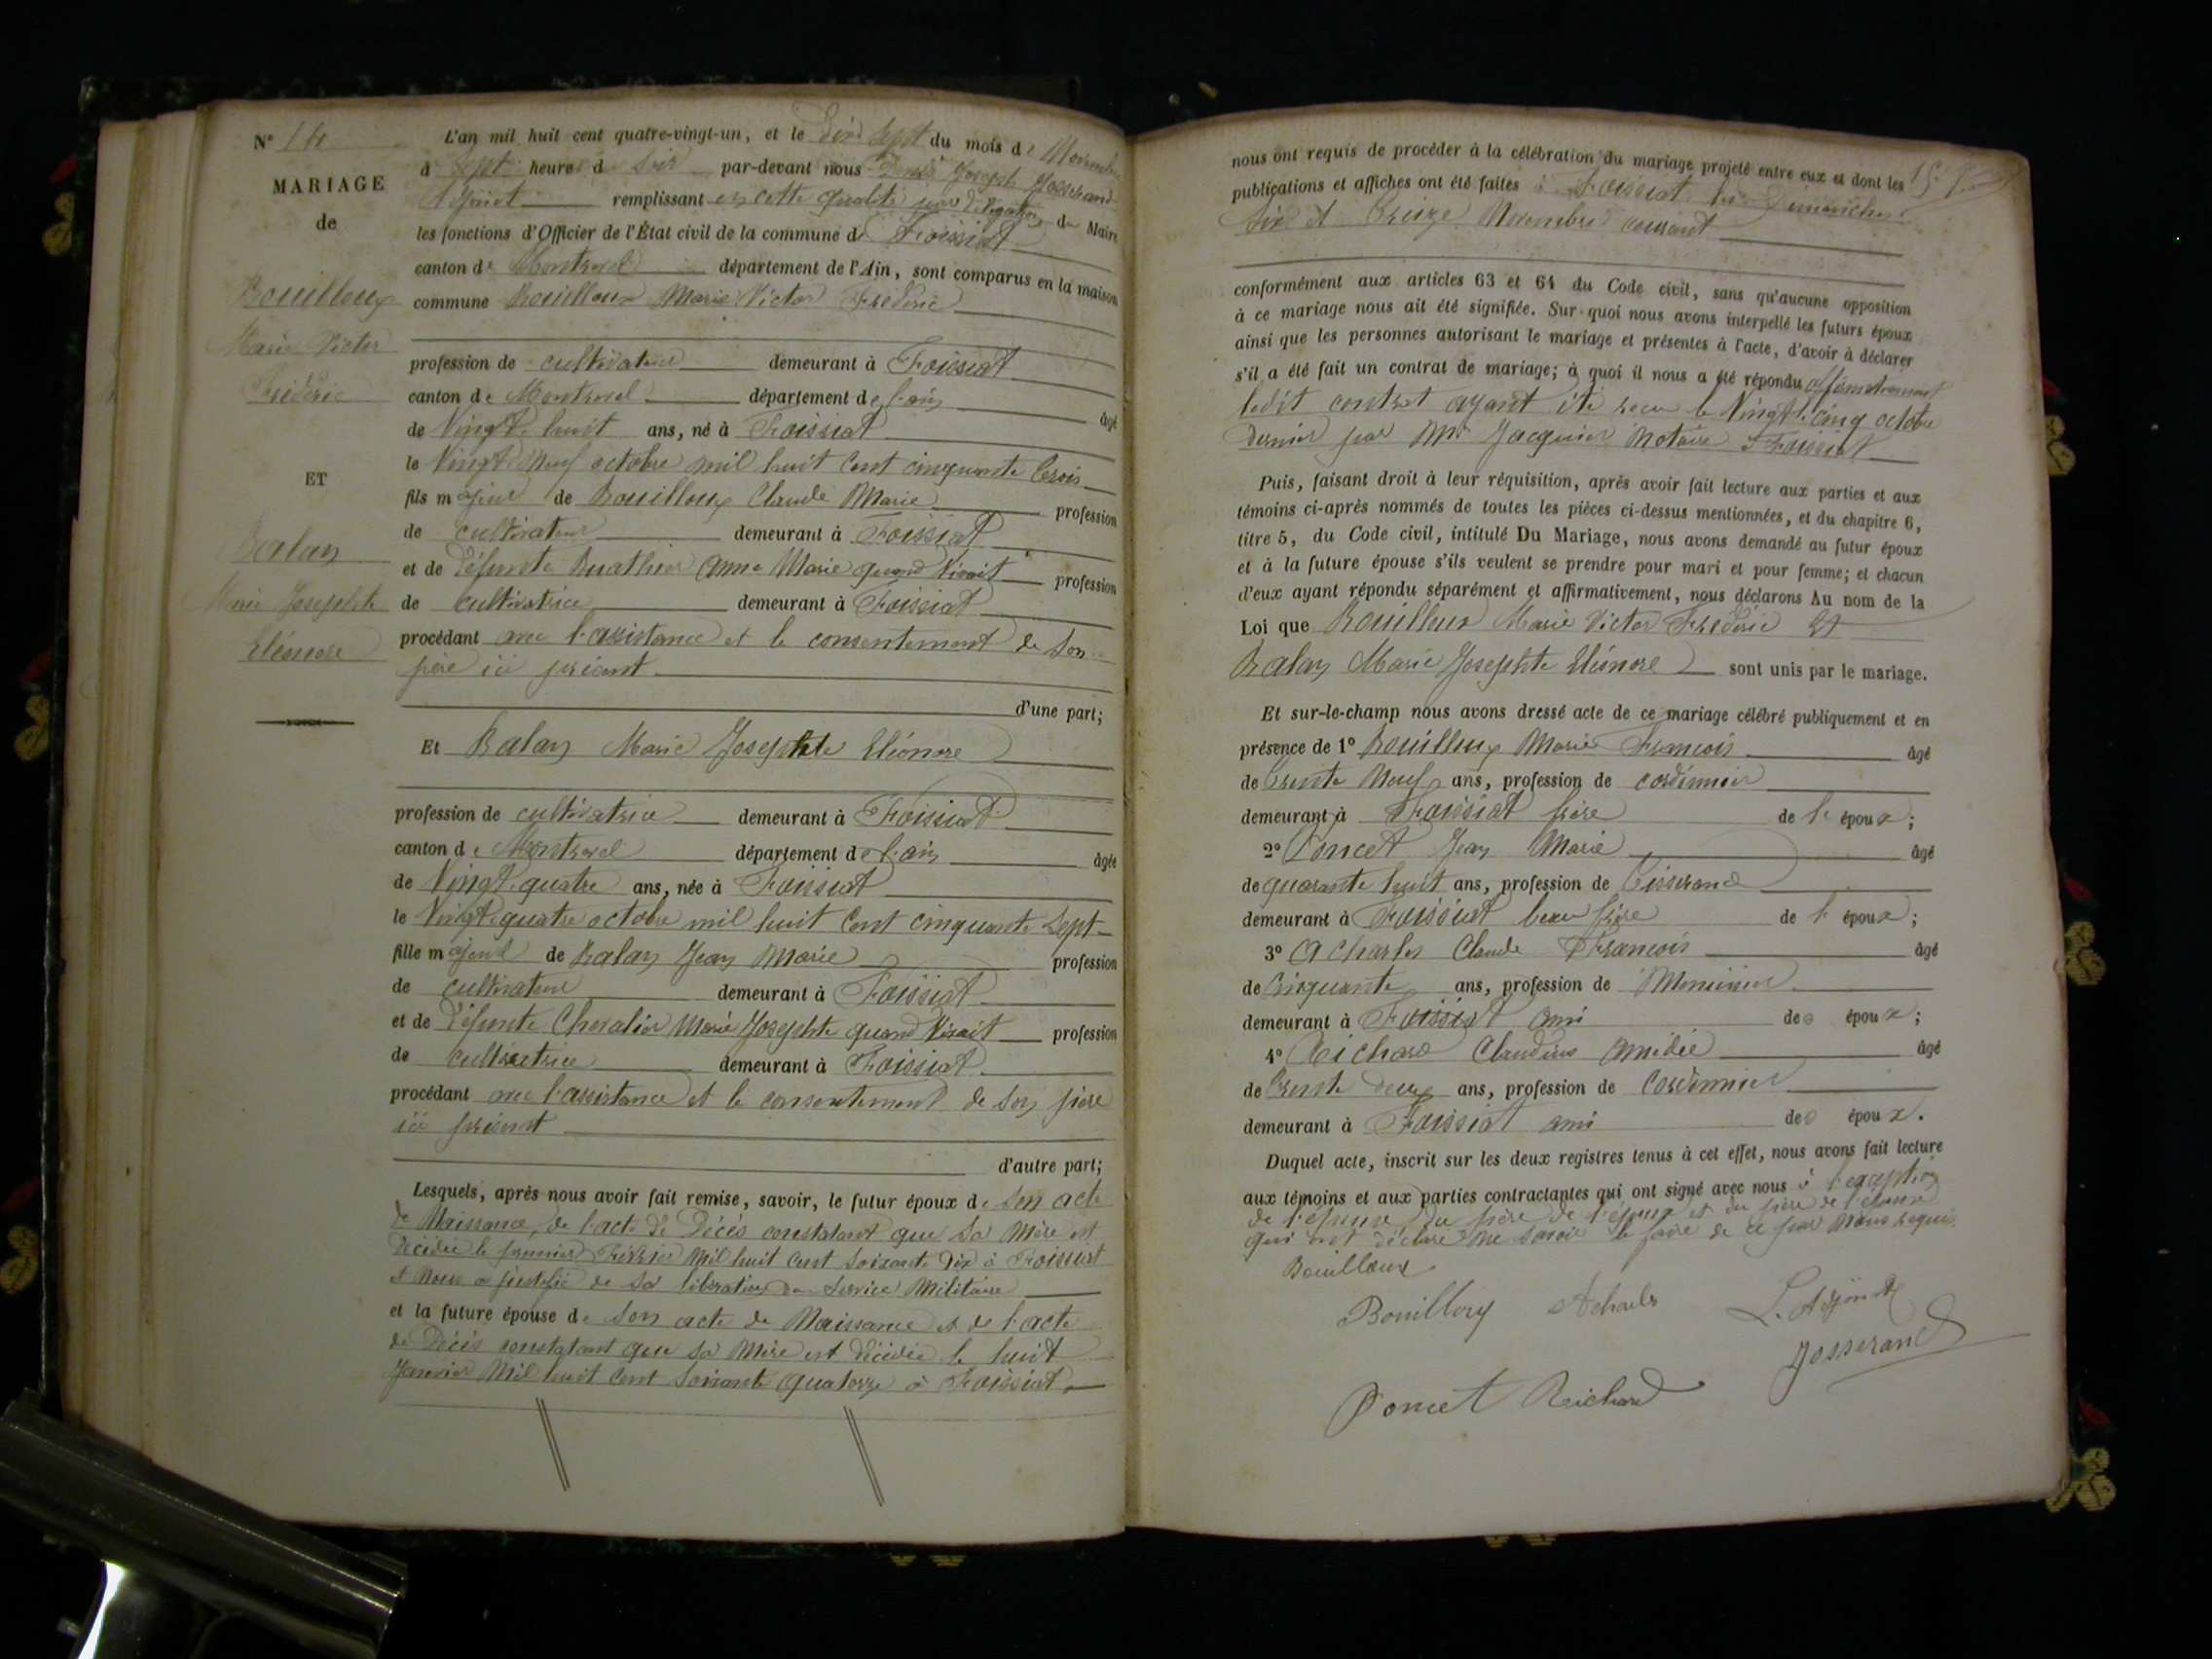 N° 14
MARIAGE
de
Bouilloux
Marie Victor
Frédéric
ET
Balay
Marie Josephte
Eléonore
L'an mil huit cent quatre-vingt-un, et le dix sept du mois de Novembre
à sept heures d soir par-devant nous Denis Joseph Josserand
Adjoint remplissant en cette qualité par délégation du Maire
les fonctions d'Officier de l'État civil de la commune de Foissiat
canton de Montrevel département de l'Ain, sont comparus en la maison
commune Bouilloux Marie Victor Frédéric
profession de cultivateur demeurant à Foissiat
canton de Montrevel département de l'ain âgé
de Vingt huit ans, né à Foissiat
le Vingt Neuf octobre mil huit Cent cinquante trois
fils majeur de Bouilloux Claude Marie profession
de cultivateur demeurant à Foissiat
et de défunte Buathier Anne Marie quand Vivait profession
de cultivatrice demeurant à Foissiat
procédant avec l'assistance et le consentement de son
père ici présent
d'une part;
Et Balay Marie Josephte Eléonore
profession de cultivatrice demeurant à Foissiat
canton de Montrevel département de l'ain âgée
de Vingt quatre ans, née à Foissiat
le Vingt quatre octobre mil huit Cent cinquante Sept
fille majeure de Balay Jean Marie profession
de cultivateur demeurant à Foissiat
et de défunte Chevalier Marie Josephte quand Vivait profession
de cultivatrice demeurant à Foissiat
procédant avec l'assistance et le consentement de son père
ici présent
d'autre part;
Lesquels, après nous avoir fait remise, savoir, le futur époux de son acte
de Naissance, de l'acte de Décès constatant que sa Mère est
Décédée le premier Février Mil huit Cent Soixante Dix à Foissiat
et Nous a justifié de sa libération du Service Militaire
et la future épouse de son acte de Naissance et de l'acte
de Décès constatant que sa Mère est décédée le huit
Janvier Mil huit Cent Soixante quatorze à Foissiat
nous ont requis de procéder à la célébration du mariage projeté entre eux et dont les
publications et affiches ont été faites à Foissiat les Dimanches
Six et Treize Novembre courant
conformément aux articles 63 et 64 du Code civil, sans qu'aucune opposition
à ce mariage nous ait été signifiée. Sur quoi nous avons interpellé les futurs époux
ainsi que les personnes autorisant le mariage et présentes à l'acte, d'avoir à déclarer
s'il a été fait un contrat de mariage; à quoi il nous a été répondu affirmativement
ledit contrat ayant été reçu le Vingt cinq octobre
dernier par Mr Jacquier Notaire à Foissiat
Puis, faisant droit à leur réquisition, après avoir fait lecture aux parties et aux
témoins ci-après nommés de toutes les pièces ci-dessus mentionnées, et du chapitre 6,
titre 5, du Code civil, intitulé Du Mariage, nous avons demandé au futur époux
et à la future épouse s'ils veulent se prendre pour mari et pour femme; et chacun
d'eux ayant répondu séparément et affirmativement, nous déclarons Au nom de la
Loi que Bouilloux Marie Victor Frédéric Et
Balay Marie Josephte Eléonore sont unis par le mariage.
Et sur-le-champ nous avons dressé acte de ce mariage célébré publiquement et en
présence de 1° Bouilloux Marie François âgé
de trente Neuf ans, profession de cordonnier
demeurant à Foissiat frère de l' époux;
2° Poncet Jean Marie âgé
de quarante huit ans, profession de tisserand
demeurant à Foissiat beau frère de l' époux;
3° Acharles Claude François âgé
de Cinquante ans, profession de Menuisier
demeurant à Foissiat ami des époux;
4° Richard Claudius Amédée âgé
de trente deux ans, profession de Cordonnier
demeurant à Foissiat ami des époux.
Duquel acte, inscrit sur les deux registres tenus à cet effet, nous avons fait lecture
aux témoins et aux parties contractantes qui ont signé avec nous à l'exception
de l'épouse, du père de l'époux et du père de l'épouse
qui ont déclaré ne savoir le faire de ce par Nous requis
Bouilloux
Bouilloux Acharles L'Adjoint
Josserand
Poncet Richard